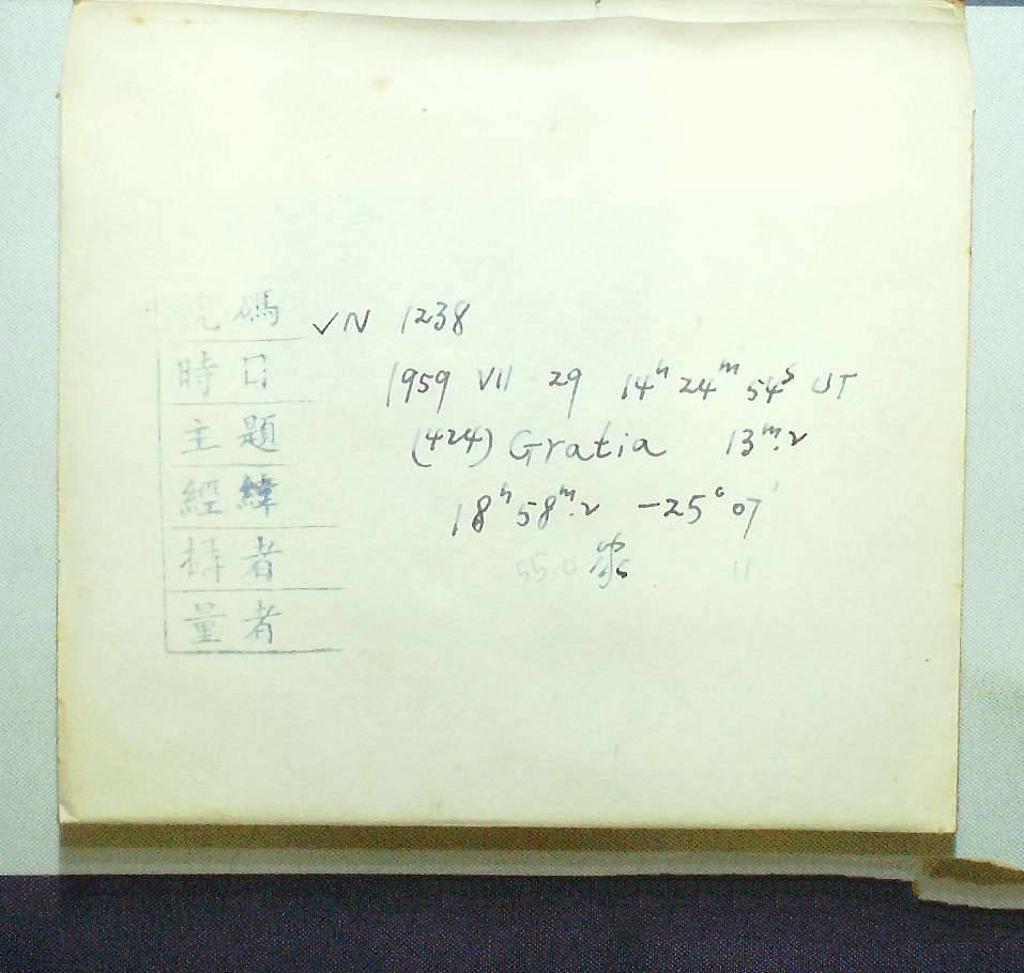 號碼 √N 1238
時日 1959 VII 29 14ʰ 24ᵐ 54ˢ UT
主題 (424) Gratia 13ᵐ.2
經緯 18ʰ 58ᵐ.2 -25° 07'
者 55.0 11
量者